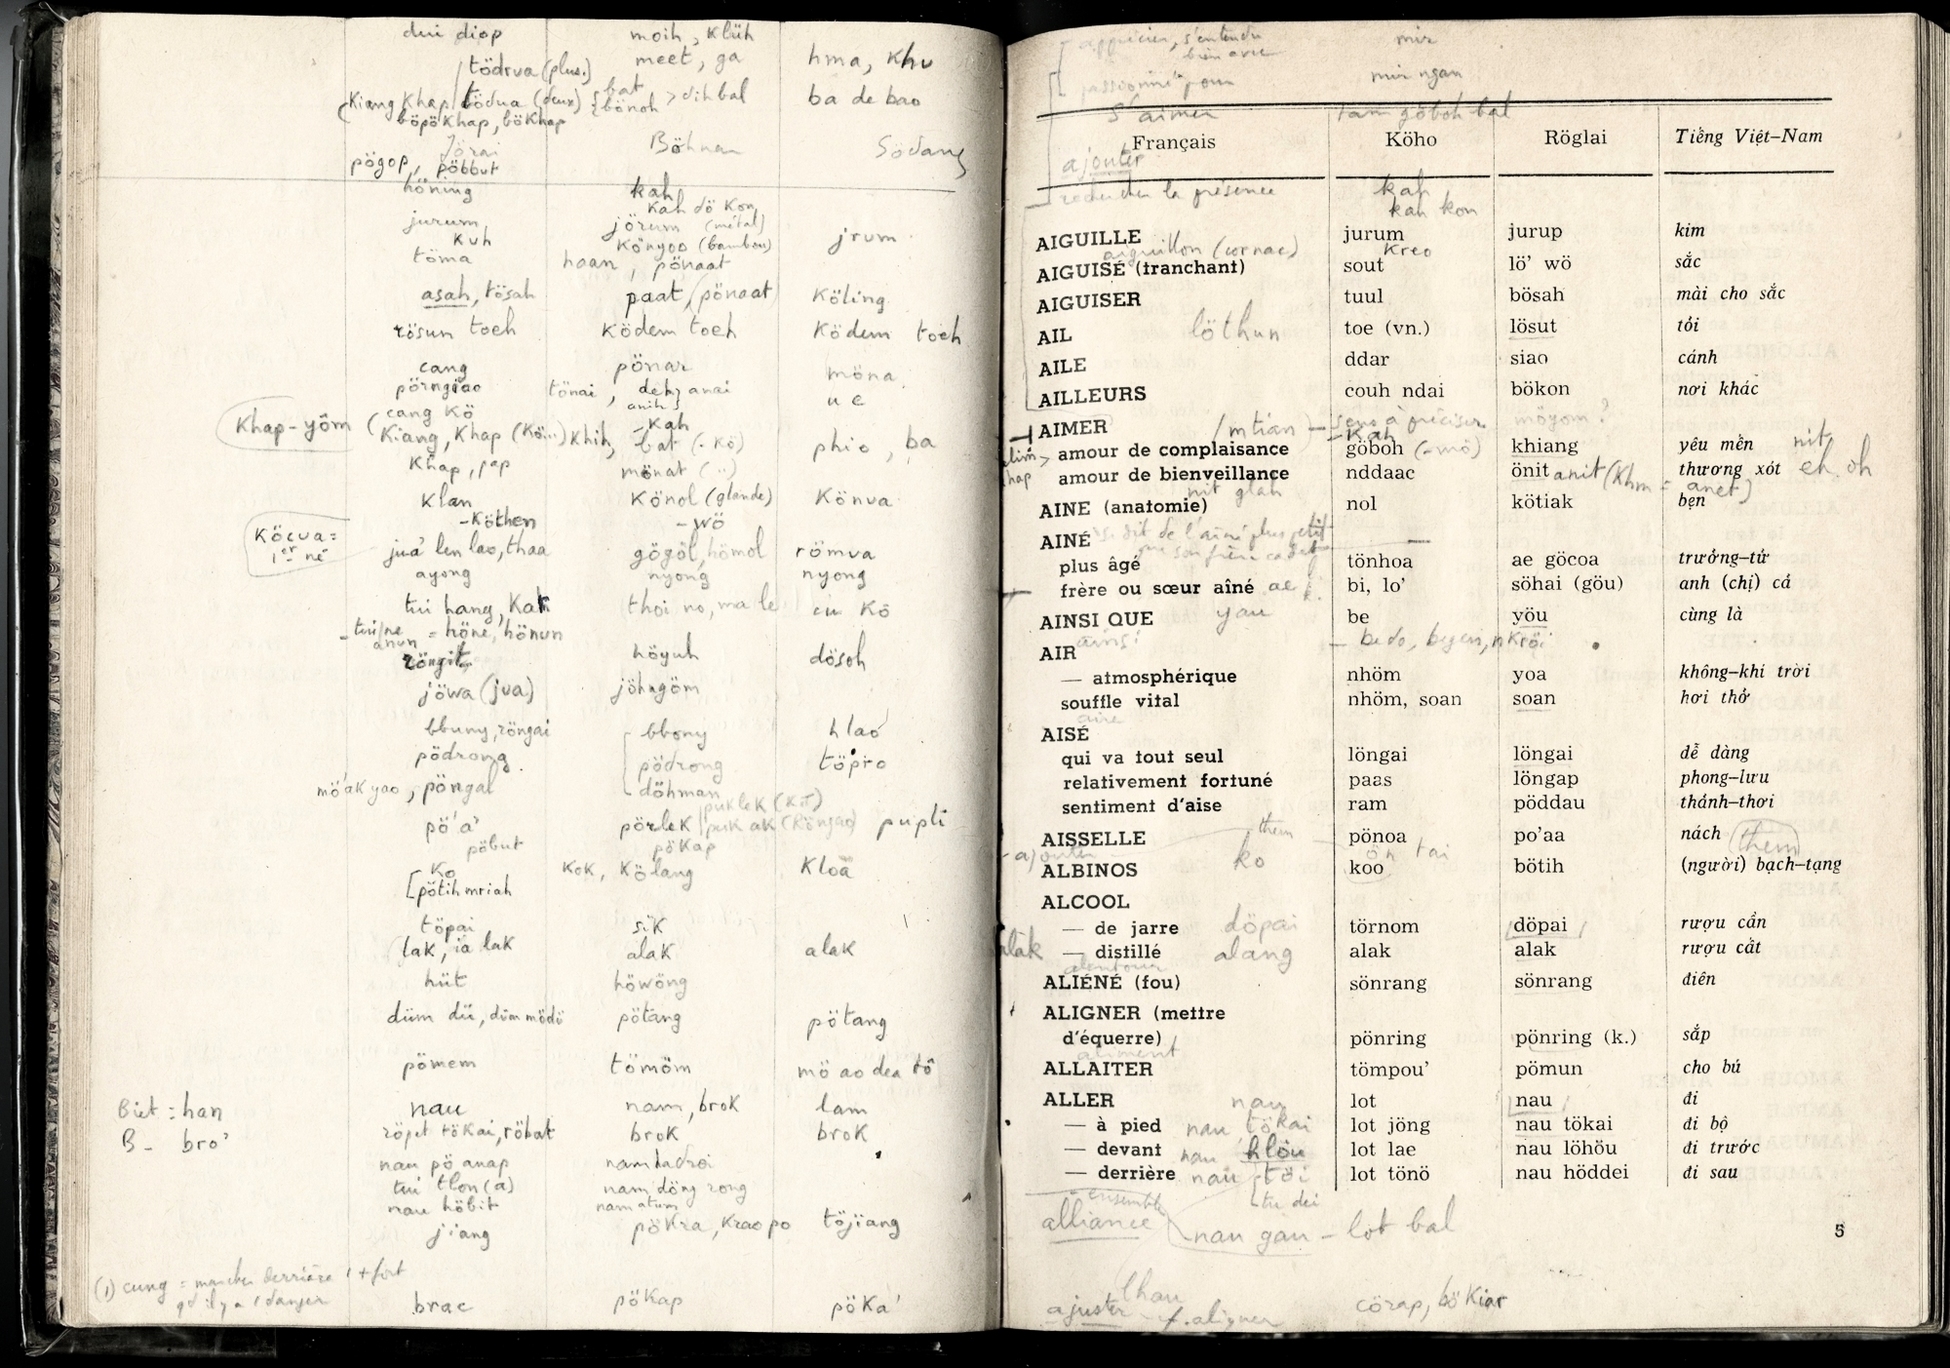 dui diop moih, klüh
tödrua (plus.) meet, ga hma, khu
(Kiang khap/tödua (deux) {bat bönoh > dih bal ba de bao
böpökhap, bökhap
Jörai Böhnar Södang
pögop, pöbbut
höning kah
kah dö kon
jurum jörum (métal) jrum
kuh könyoo (bambou)
töma haan, pönaat
asah, tösah paat, (pönaat) köling
rösun toeh ködem toeh ködem toeh
cang pönar möna
pörngiao tönai, deh anai anih} u e
cang kö -kah
Khap-yöm (Kiang, khap (kö...) khih, bat (-kö) phio, ba
khap, pap mönat (..)
klan könol (glande) könva
-köthen -wö
Köcua = 1er né
jua' len lao, thaa gögöl, hömol römva
ayong nyong nyong
tui hang, kah thoi no, ma le cu kö
-tui/ne anun = höne, hönun
röngit höyuh dösoh
jöwa (jua) jöhngöm
bbuny, röngai bbony hlao
pödrong pödrong töpro
mö'ak yao, pöngal döhman
puklek (kit)
pö'a' pörlek puk ak (Röngao) pupli
pöbut pökap
ko kok, kölang kloa
[pötih mriah
töpai sik
(lak, ia lak alak alak
hüt höwöng
düm dü, düm mödü pötang pötang
pömem tömöm mö ao dea tö
Biet = han nau nam, brok lam
B - bro' röpet tökai, röbat brok brok
nau pö anap nam hadroi
tui tlon (a) nam döng rong
nau höbit nam atum
jiang pökra, krao po töjiang
(1) cung = marcher derrière 1 + fort
qd il y a 1 danger
brac pökap pöka'
apprécier, s'entendre bien avec mir
passionné pour mir ngan
s'aimer tam göboh bal
Français Köho Röglai Tiếng Việt–Nam
ajouter
rechercher la présence kah
kah kon
AIGUILLE jurum jurup kim
aiguillon (cornac) kreo
AIGUISÉ (tranchant) sout lö' wö sắc
AIGUISER tuul bösah mài cho sắc
AIL löthun toe (vn.) lösut tỏi
AILE ddar siao cánh
AILLEURS couh ndai bökon nơi khác
AIMER (mtian) - sens à préciser möyom ?
-kah
amour de complaisance göboh (-mö) khiang yêu mến nit
amour de bienveillance nddaac önit anit (khm = anet) thương xót eh oh
nit glah
AINE (anatomie) nol kötiak bẹn
AINÉ se dit de l'aîné plus petit
que son frère cadet
plus âgé tönhoa ae göcoa trưởng–tử
frère ou sœur aîné ae bi, lo' söhai (göu) anh (chị) cả
AINSI QUE yau be yöu cùng là
ainsi - be do, be yeni, nkröi
AIR
— atmosphérique nhöm yoa không–khí trời
souffle vital nhöm, soan soan hơi thở
aire
AISÉ
qui va tout seul löngai löngai dễ dàng
relativement fortuné paas löngap phong–lưu
sentiment d'aise ram pöddau thánh–thơi
AISSELLE them pönoa po'aa nách (them)
- ajouter ön tai
ALBINOS ko koo bötih (người) bạch–tạng
ALCOOL
— de jarre döpai törnom döpai rượu cần
alak — distillé alang alak alak rượu cất
alentour
ALIÉNÉ (fou) sönrang sönrang điên
ALIGNER (mettre
d'équerre) pönring pönring (k.) sắp
aliment
ALLAITER tömpou' pömun cho bú
ALLER nau lot nau đi
— à pied nau tökai lot jöng nau tökai đi bộ
— devant nau hlöu lot lae nau löhöu đi trước
— derrière nau töi lot tönö nau höddei đi sau
ensemble tu dei
alliance nau gau - lot bal
5
lhau
ajuster - f. aligner cörap, bö kiar